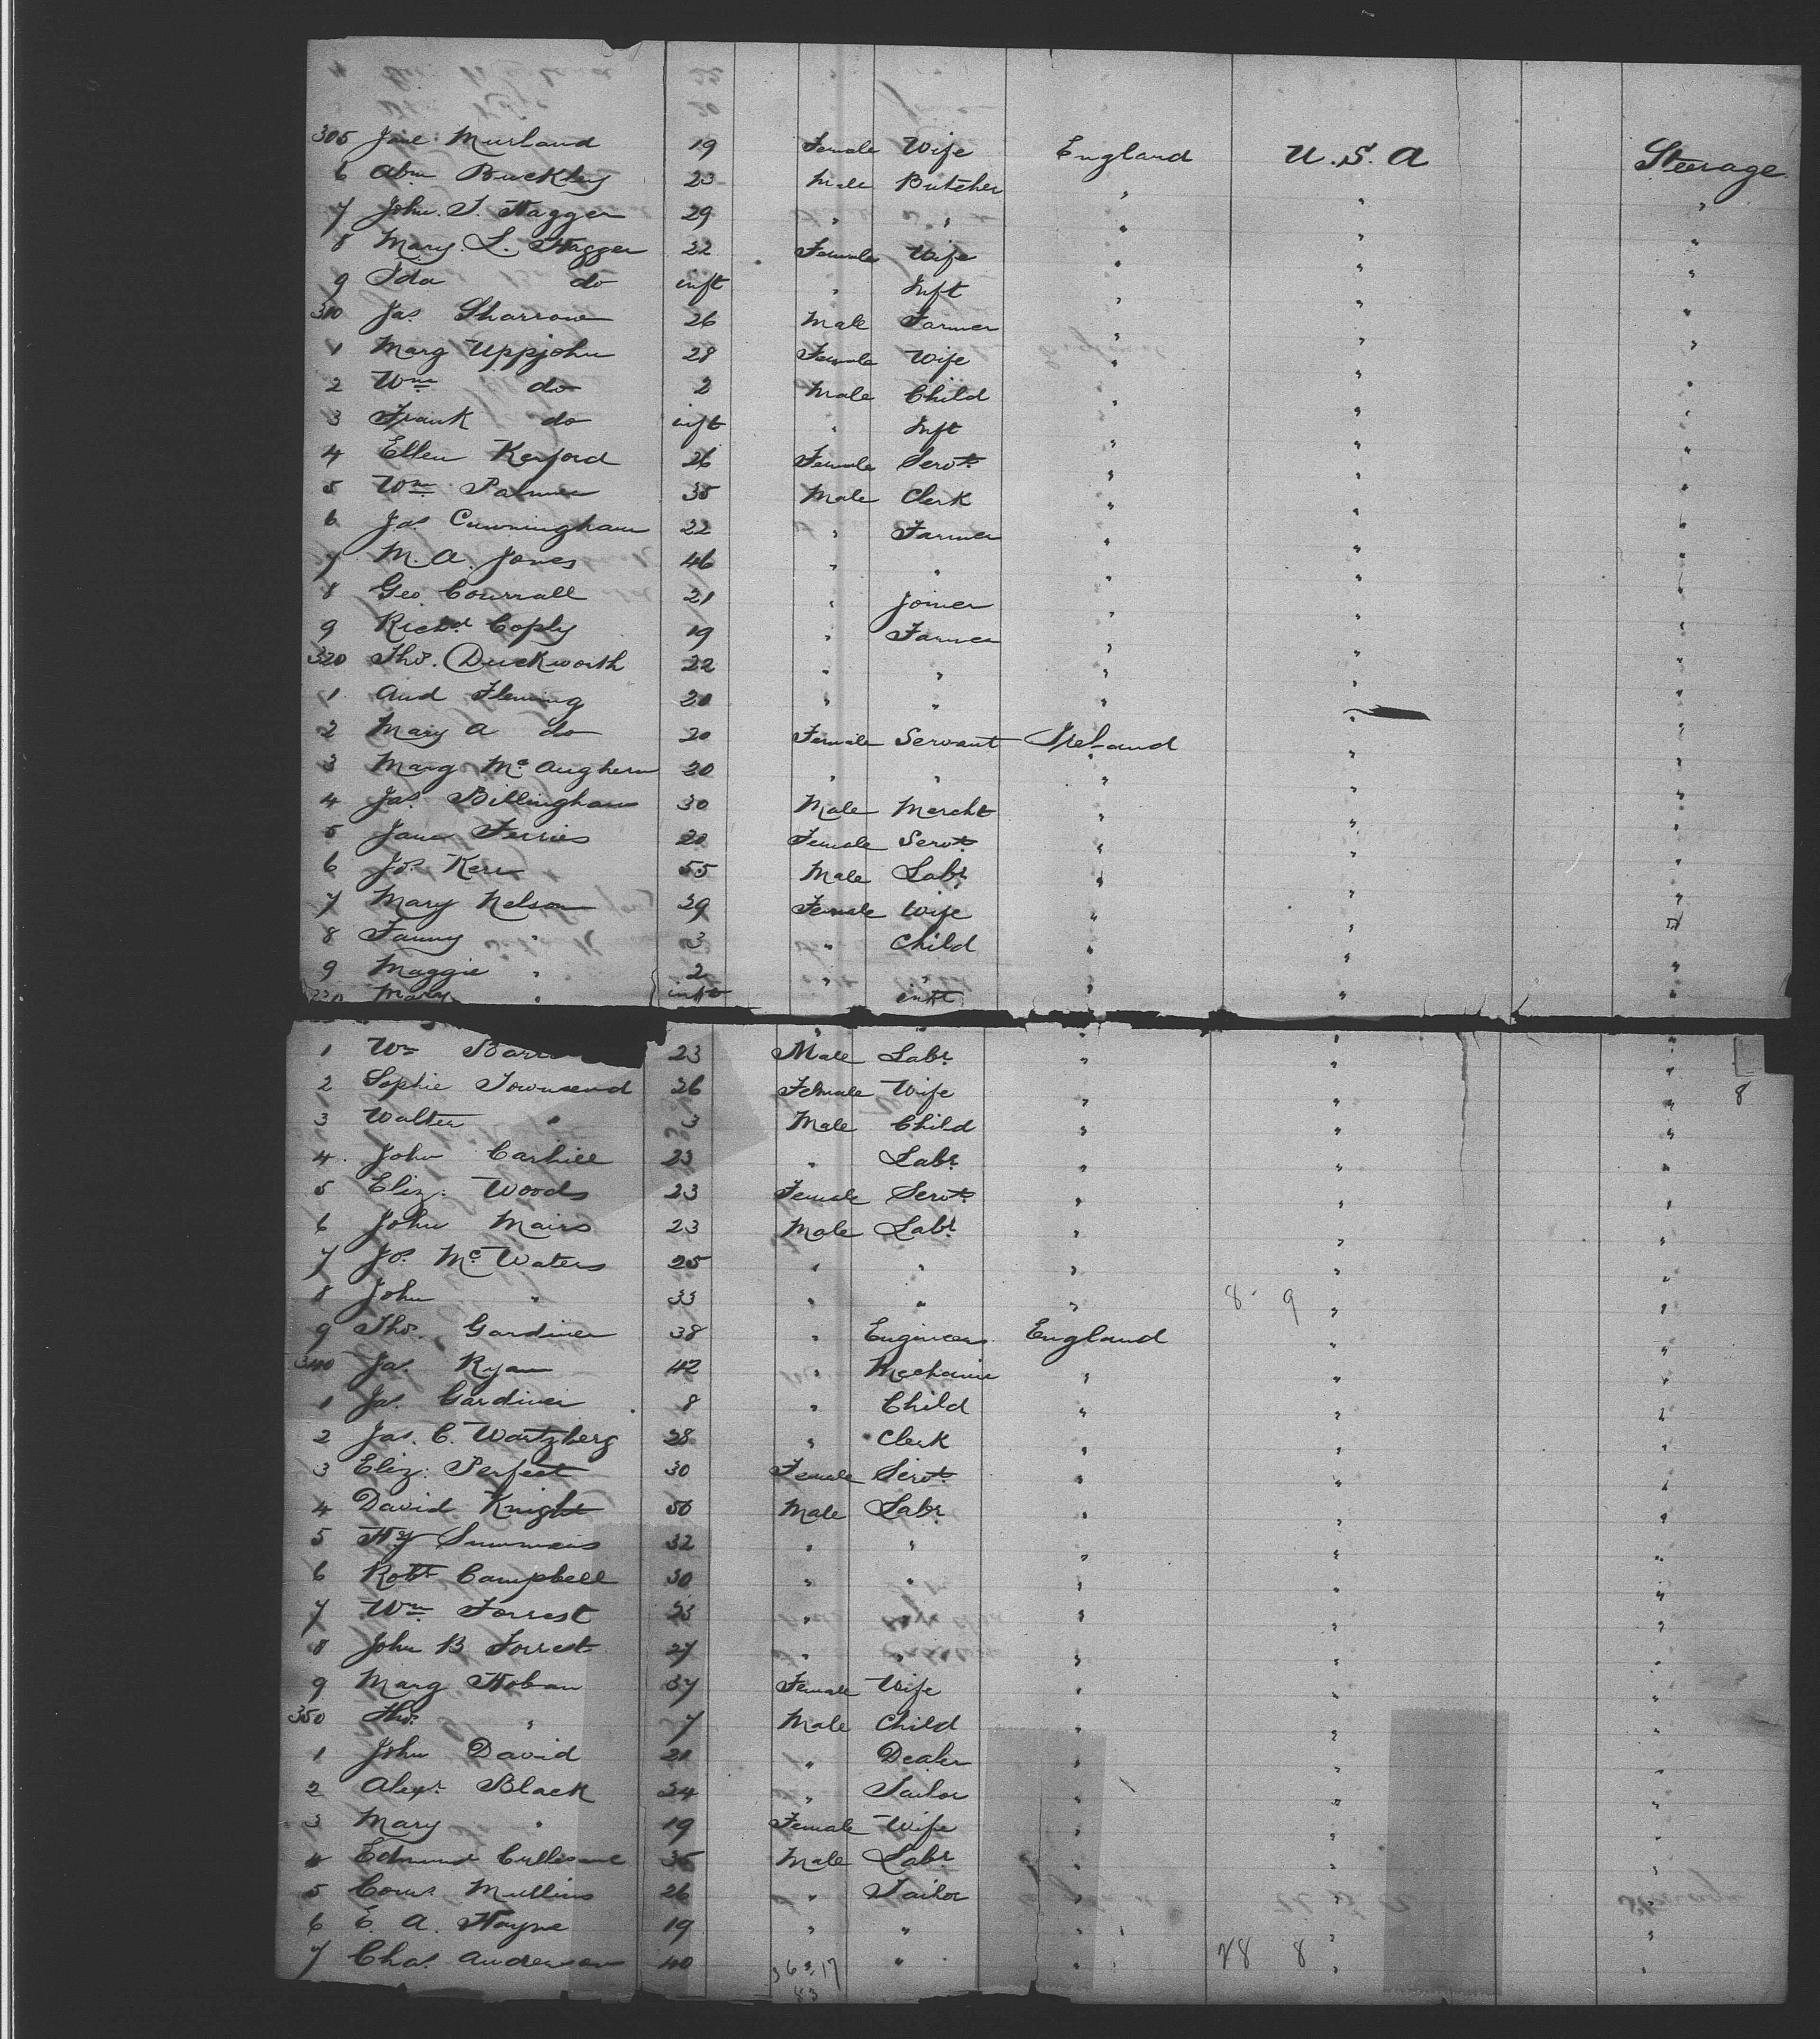 305 Jane Murland 19 Female Wife England U.S.A Steerage
6 Abm Buckley 23 Male Butcher " " "
7 John. T. Hagger 29 " " " " "
8 Mary. L. Hagger 22 Female Wife " " "
9 Ida do inft " Inft " " "
310 Jas Sharrow 26 Male Farmer " " "
1 Marg Uppjohn 28 Female Wife " " "
2 Wm do 2 Male Child " " "
3 Frank do inft " Inft " " "
4 Ellen Kerford 26 Female Servt " " "
5 Wm Palmer 35 Male Clerk " " "
6 Jas Cunningham 22 " Farmer " " "
7 M. A. Jones 46 " " " " "
8 Geo Courrall 21 " Joiner " " "
9 Richd Coply 19 " Farmer " " "
320 Thos. Duckworth 22 " " " " "
1 And Fleming 20 " " " " "
2 Mary A do 20 Female Servant Ireland " "
3 Marg Mc Aughern 20 " " " " "
4 Jas. Billingham 30 Male Mercht " " "
5 Jane Ferries 20 Female Servt " " "
6 Jos. Kerr 55 Male Labr " " "
7 Mary Nelson 29 Female Wife " " "
8 Fanny " 3 " Child " " "
9 Maggie " 2 " " " " "
330 Mary " inft " inft " " "
1 Wm 23 Male Labr " " "
2 Sophie Townsend 26 Female Wife " " " 8
3 Walter " 3 Male Child " " "
4 John Carhill 23 " Labr " " "
5 Eliz: Woods 23 Female Servt " " "
6 John Mairs 23 Male Labr " " "
7 Jos. Mc Waters 25 " " " " "
8 John " 33 " " " 8 - 9 " "
9 Thos. Gardiner 38 " Engineer England " "
340 Jas. Ryan 42 " Mechanic " " "
1 Jas. Gardiner 8 " Child " " "
2 Jas. C. Wartzberg 28 " Clerk " " "
3 Eliz: Perfect 30 Female Servt " " "
4 David Knight 50 Male Labr " " "
5 Hy Summers 32 " " " " "
6 Robt Campbell 30 " " " " "
7 Wm Forrest 23 " " " " "
8 John B Forrest 27 " " " " "
9 Marg Hoban 37 Female Wife " " "
350 Thos. " 7 Male Child " " "
1 John David 21 " Dealer " " "
2 Alexr Black 24 " Tailor " " "
3 Mary " 19 Female Wife " " "
4 Edmund Cullinane 35 Male Labr " " "
5 Corns. Mullins 26 " Tailor " " "
6 E. A. Hayne 19 " " " " "
7 Chas. Anderson 40 " " 28 8 " "